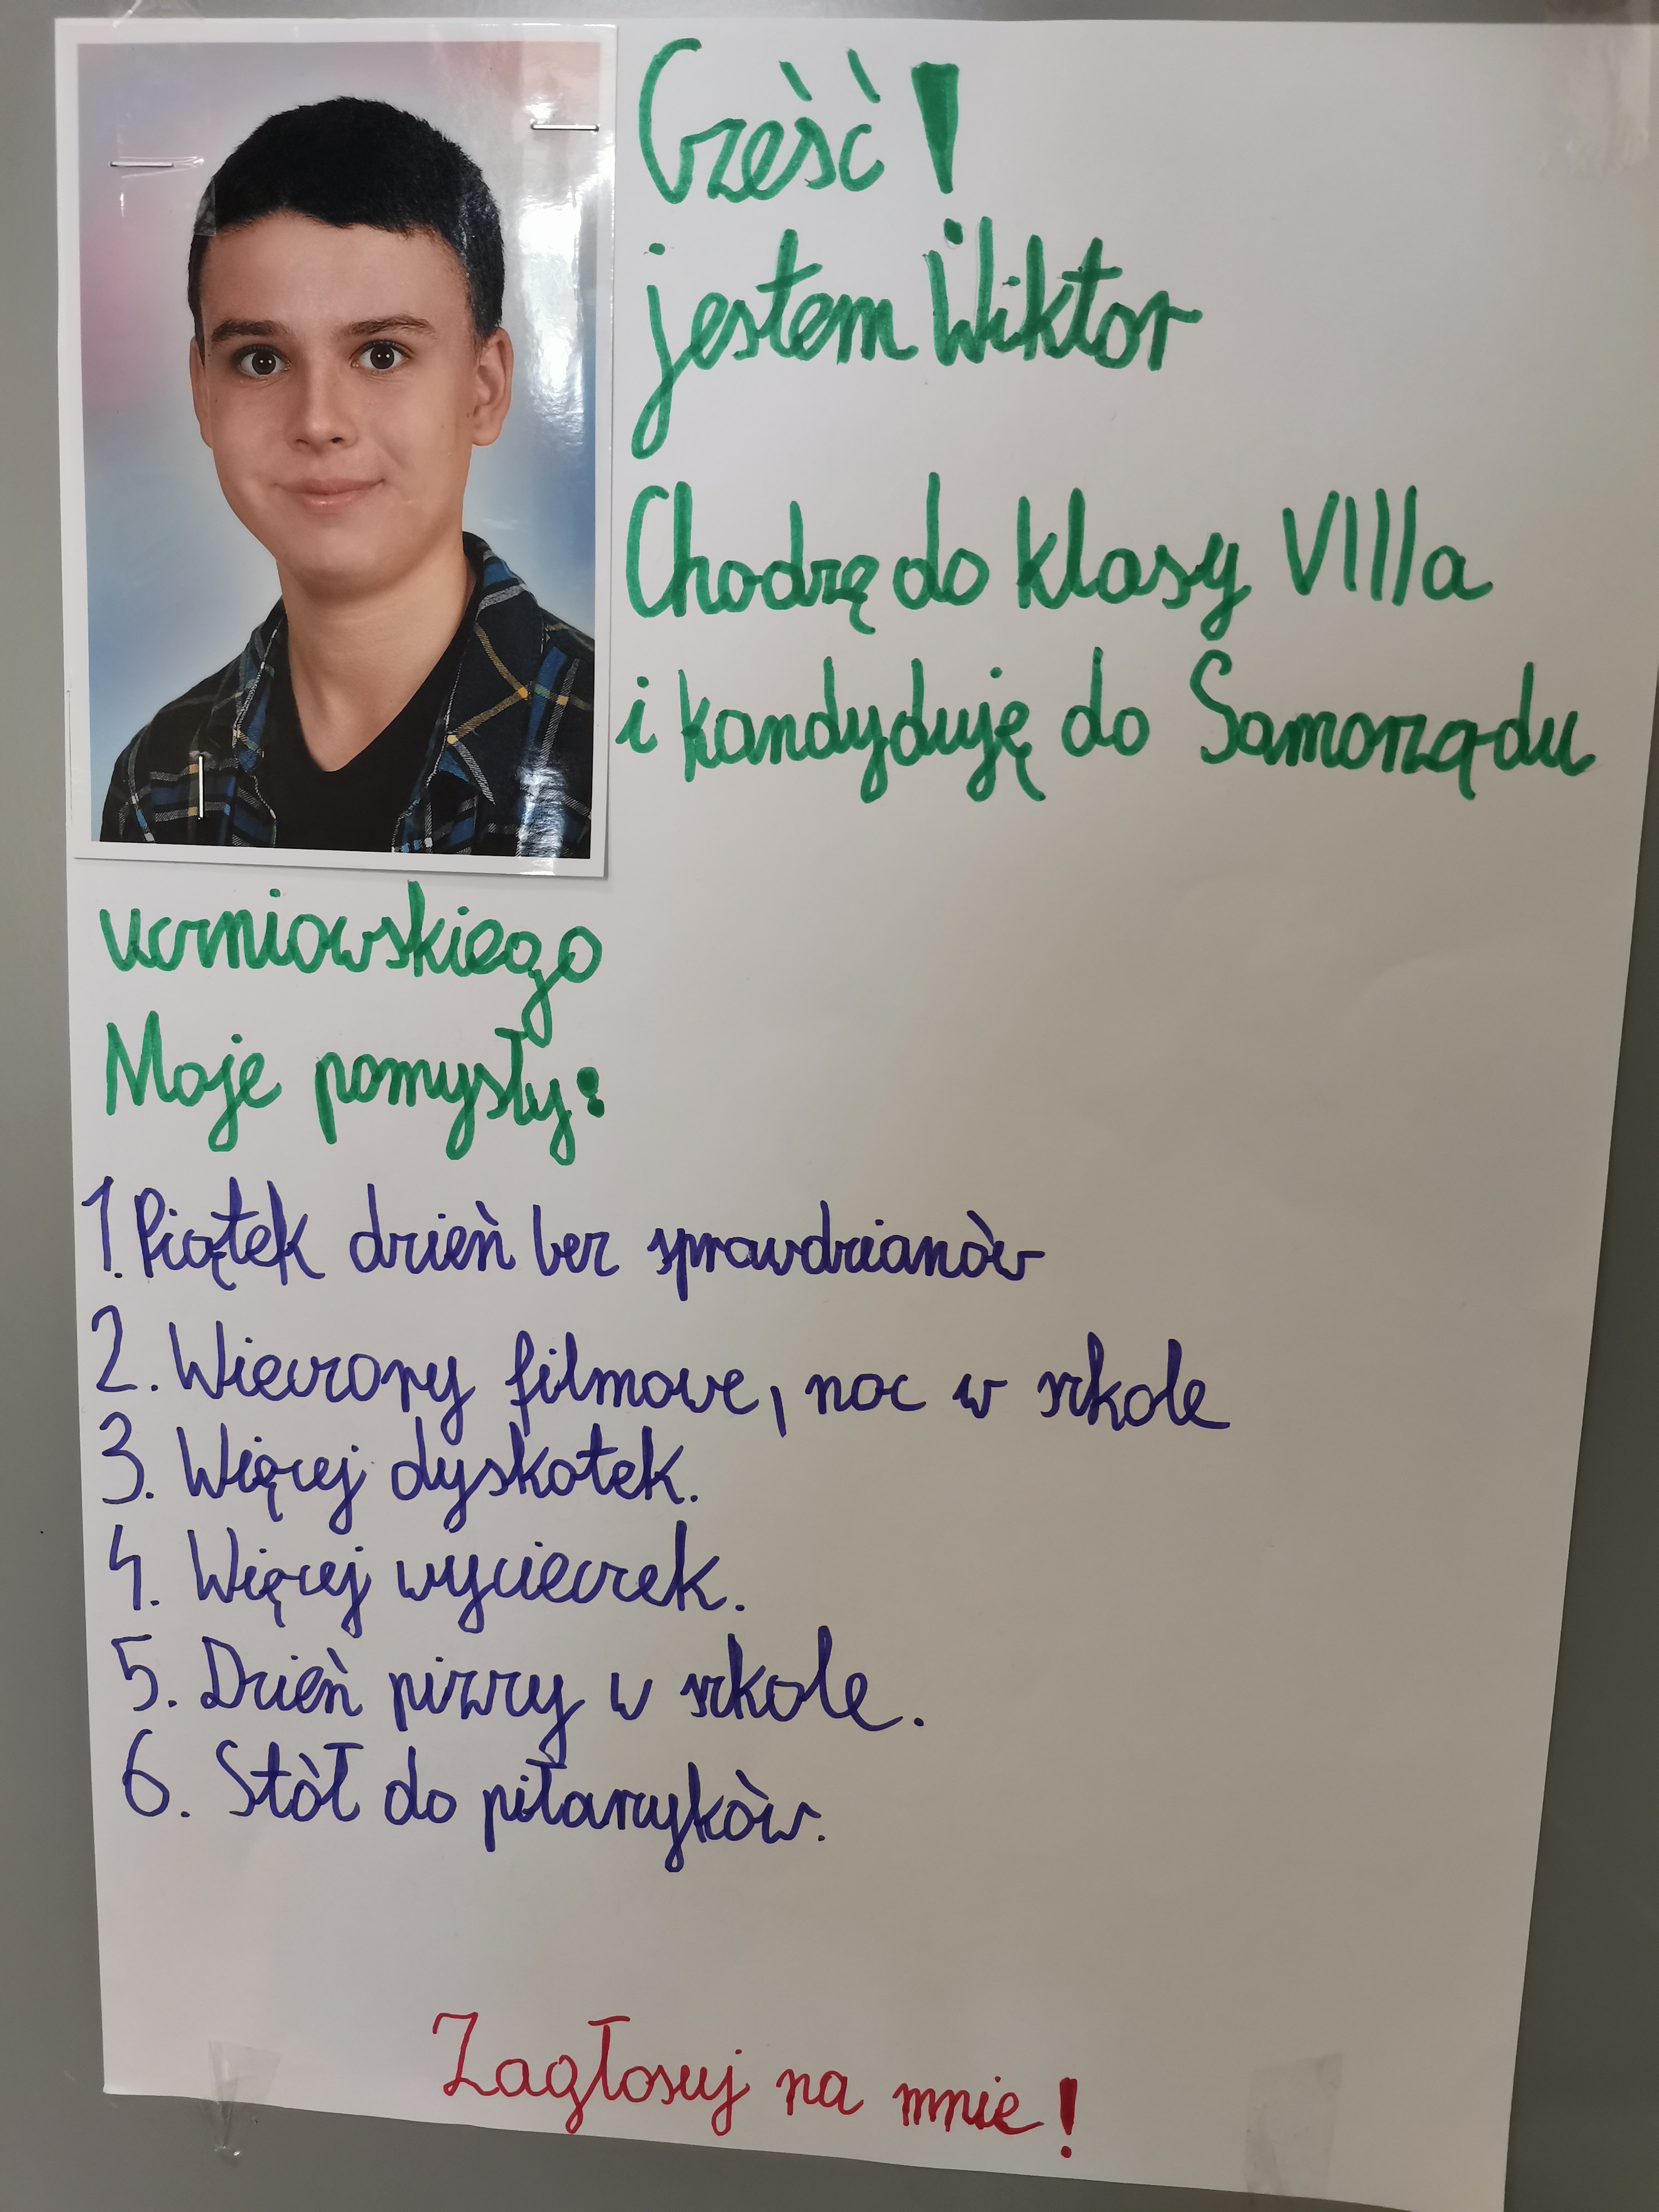 Cześć!
jestem Wiktor
Chodzę do klasy VIIIa
i kandyduję do Samorządu
uczniowskiego
Moje pomysły:
1. Piątek dzień bez sprawdzianów
2. Wieczory filmowe, noc w szkole
3. Więcej dyskotek.
4. Więcej wycieczek.
5. Dzień pizzy w szkole.
6. Stół do piłarzyków.
Zagłosuj na mnie!